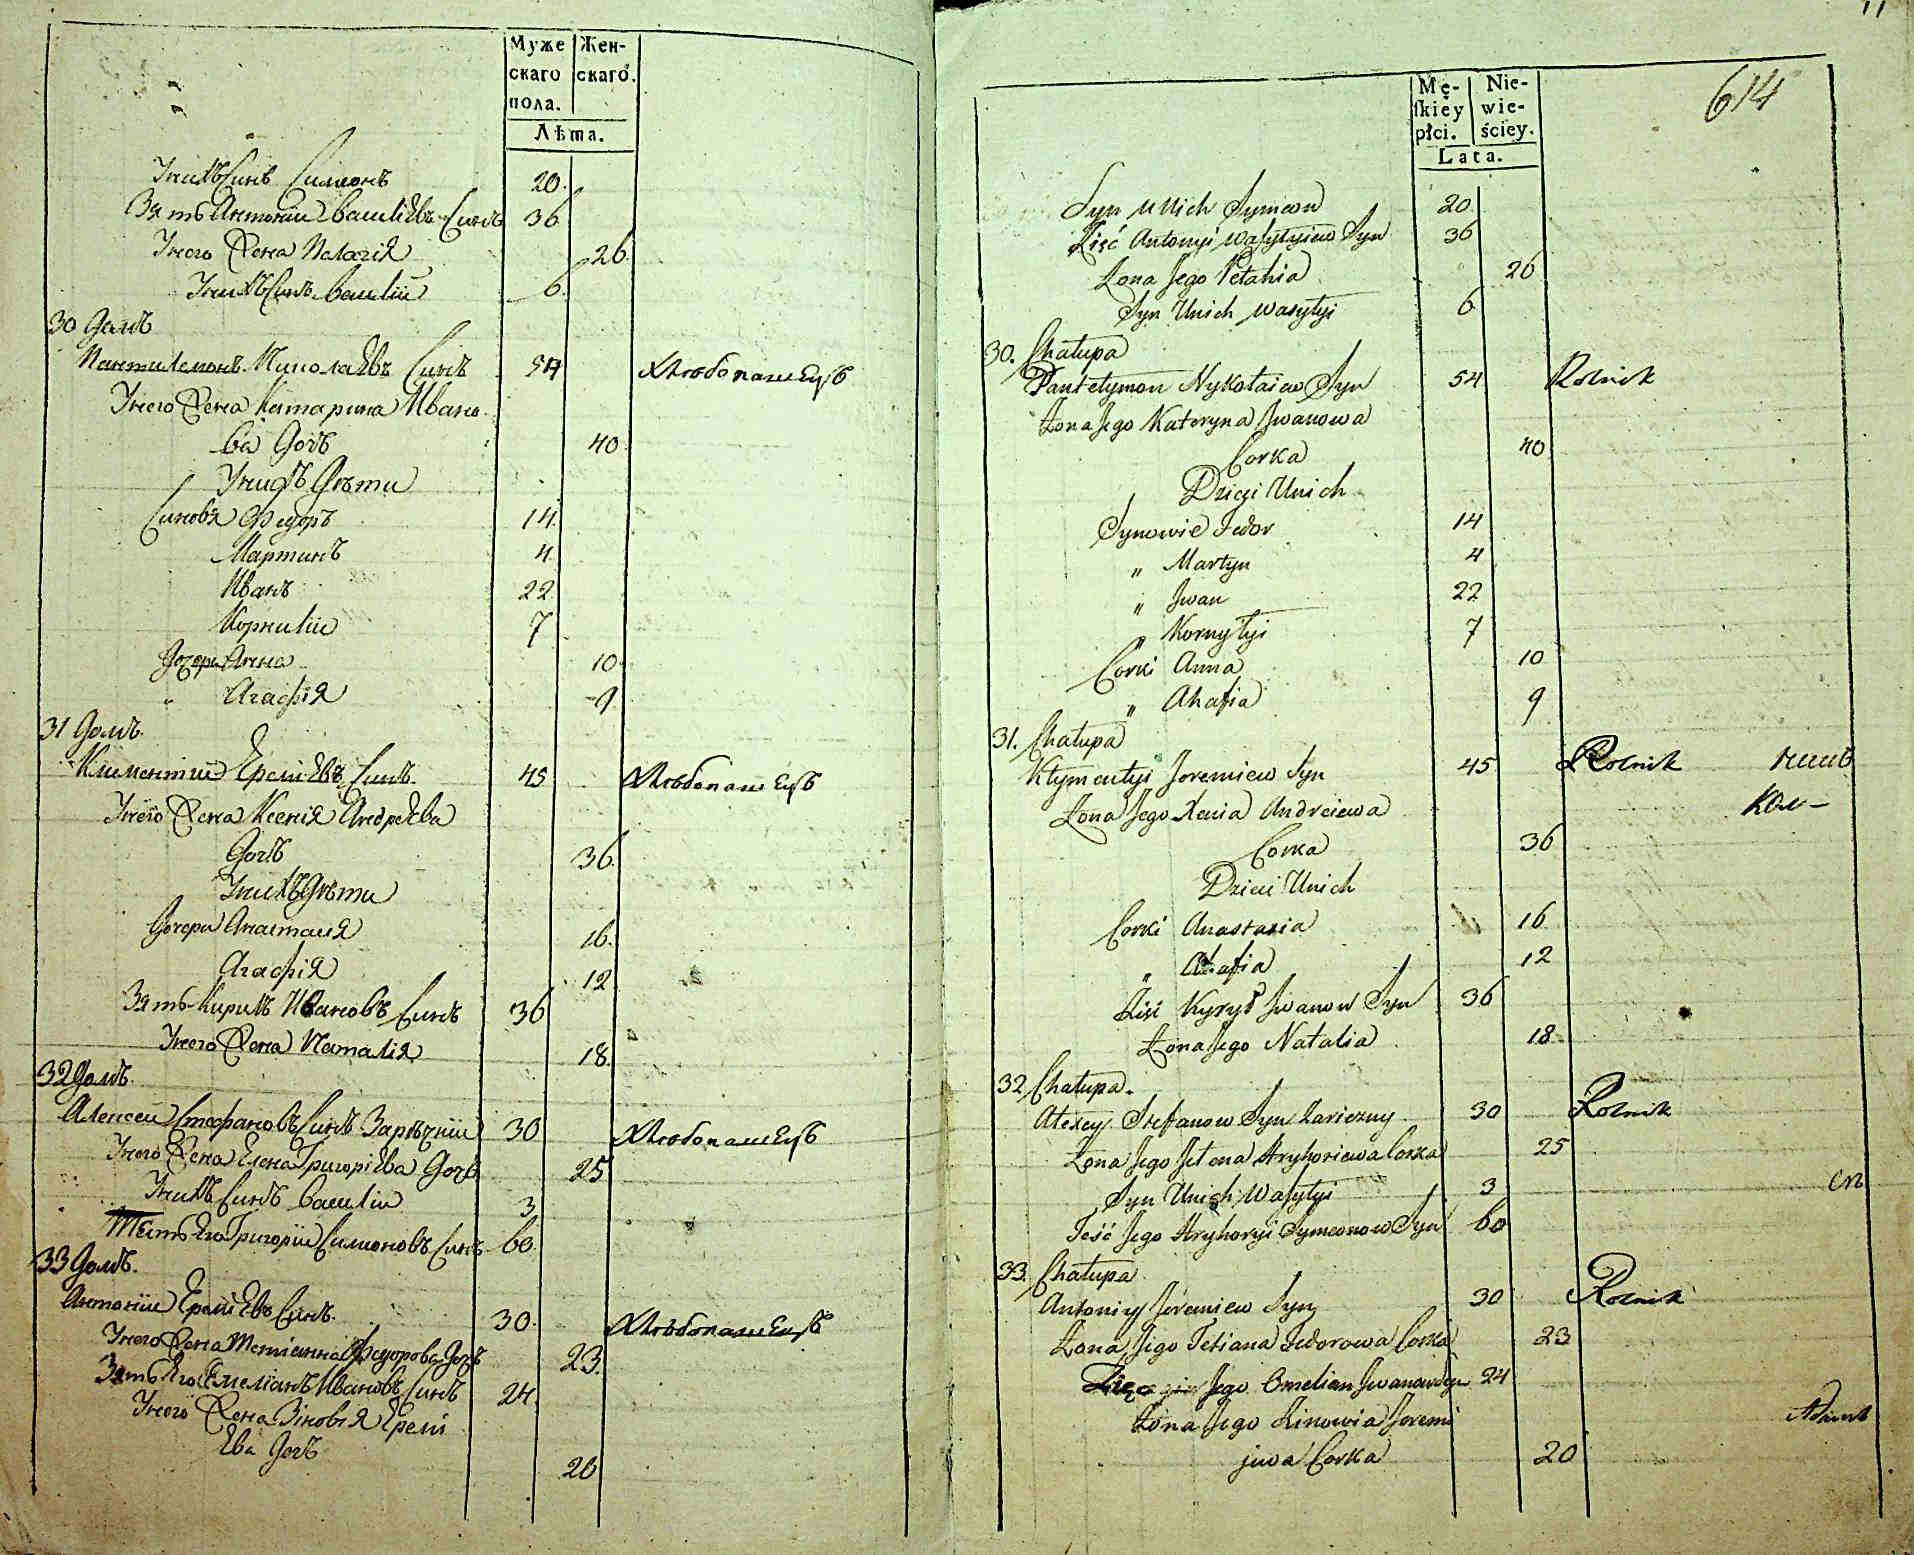 Муже
скаго
пола.
Жен-
скаго.
Лѣта.
У нихъ Синъ Симеонъ 20.
Зять Антоній Василіевъ Синъ 36
У него Жена Пелагія 26
У нихъ Синъ Василій 6.
30 Домъ
Пантилемонъ Николаевъ Синъ 54 Хлѣбопашецъ
У него Жена Катарина Ивано
ва Дочь 40
У нихъ Дѣти
Синовя Федоръ 14
Мартинъ 4
Иванъ 22
Корнилій 7
Дочери Анна 10
" Агафія 9
31 Домъ.
Климентій Ереміевъ Синъ. 45 Хлѣбопашецъ
У него Жена Ксенія Андреева
Дочь 36.
У нихъ Дѣти
Дочери Анастасія 16.
Агафія 12
Зять Кирилъ Ивановъ Синъ 36
У него Жена Наталія 18.
32 Домъ.
Алексей Стефановъ Синъ Зарѣчній 30 Хлѣбопашецъ
У него Жена Елена Григоріева Дочь 25
У нихъ Синъ Василій 3
Тесть Его Григорій Симионовъ Синъ 60.
33 Домъ.
Антоній Ереміевъ Синъ. 30. Хлѣбопашецъ
У него Жена Тетіанна Федорова Дочь 23.
Зять Его Емеліанъ Ивановъ Синъ 24.
У него Жена Зіновія Еремі
ева Дочь 20
11
614
Mę-
ſkiéy
płci.
Nie-
wie-
ściey.
Lata.
Syn U Nich Symeon 20
Zięć Antonyi Wasylyiew Syn 36
Żona Jego Pelahia 26
Syn Unich Wasylyi 6
30. Chałupa
Pantelymon Nykołaiow Syn 54 Rolnik
Żona Jego Kateryna Jwanowa
Corka 40
Dzieci Unich
Synowie Fedor 14
" Martyn 4
" Jwan 22
" Kornyłyi 7
Corki Anna 10
" Ahafia 9
31. Chałupa
Kłymentyi Jeremiew Syn 45 Rolnik
Żona Jego Xenia Andreiewa
Corka 36
Dzieci Unich
Corki Anastazia 16
" Ahafia 12
Zięć Kyrył Jwanow Syn 36
Żona Jego Natalia 18
32 Chałupa.
Alexey Stefanow Syn Zariczny 30 Rolnik
Żona Jego Jełena Hryhoriewa Corka 25
Syn Unich Wasylyi 3
Teść Jego Hryhoryi Symeonow Syn 60
33. Chałupa
Antoniy Jeremiew Syn 30 Rolnik
Żona Jego Tetiana Fedorowa Corka 23
Jego Omelian Jwanow Syn 24
Żona Jego Zinowia Jeremi
jewa Corka 20